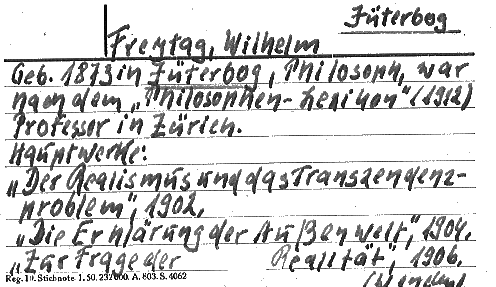 Jüterbog
Freytag, Wilhelm
Geb. 1873 in Jüterbog, Philosoph, war
nach dem „Philosophen-Lexikon" (1912)
Professor in Zürich.
Hauptwerke:
„Der Realismus und das Transzendenz-
problem", 1902.
„Die Erklärung der Außenwelt", 1904.
„Zur Frage der Realität", 1906.
Reg. Stichnote 1. 50. 232000. A. 803. S. 4062